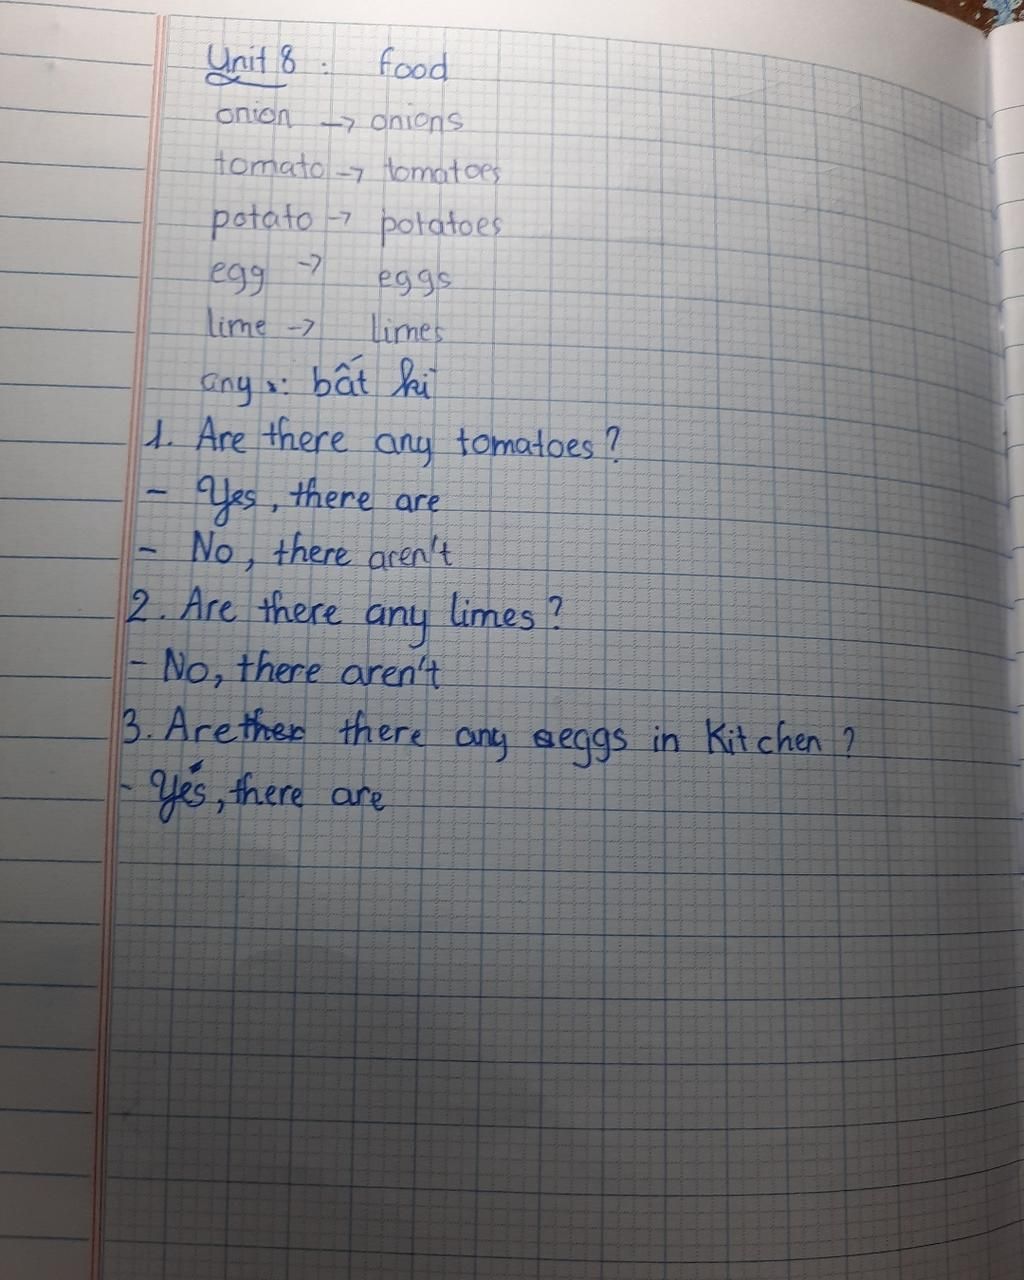 Unit 8 : food
onion → onions
tomato → tomatoes
potato → potatoes
egg → eggs
lime → limes
any : bất kì
1. Are there any tomatoes ?
- Yes, there are
- No, there aren't
2. Are there any limes ?
- No, there aren't
3. Are there any eggs in Kitchen ?
- Yes, there are